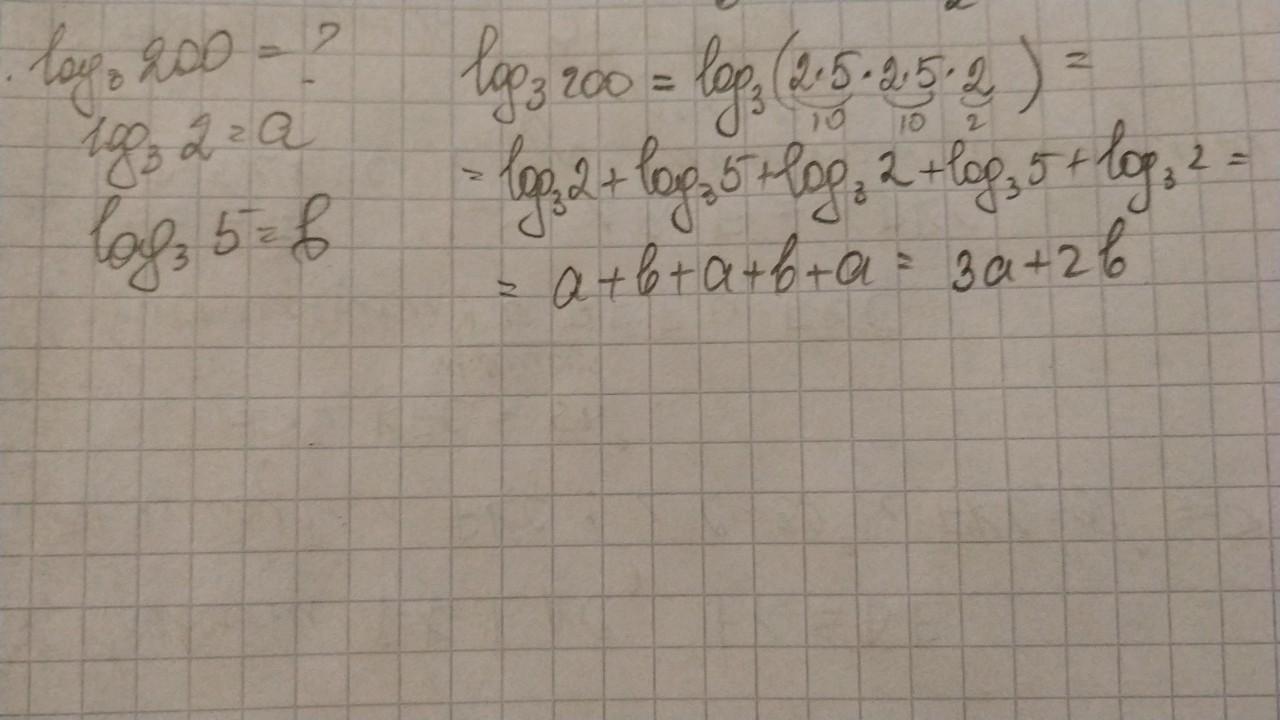 log₃ 200 = ?
log₃ 2 = a
log₃ 5 = b
log₃ 200 = log₃ (2·5·2·5·2) =
10 10 2
= log₃ 2 + log₃ 5 + log₃ 2 + log₃ 5 + log₃ 2 =
= a + b + a + b + a = 3a + 2b